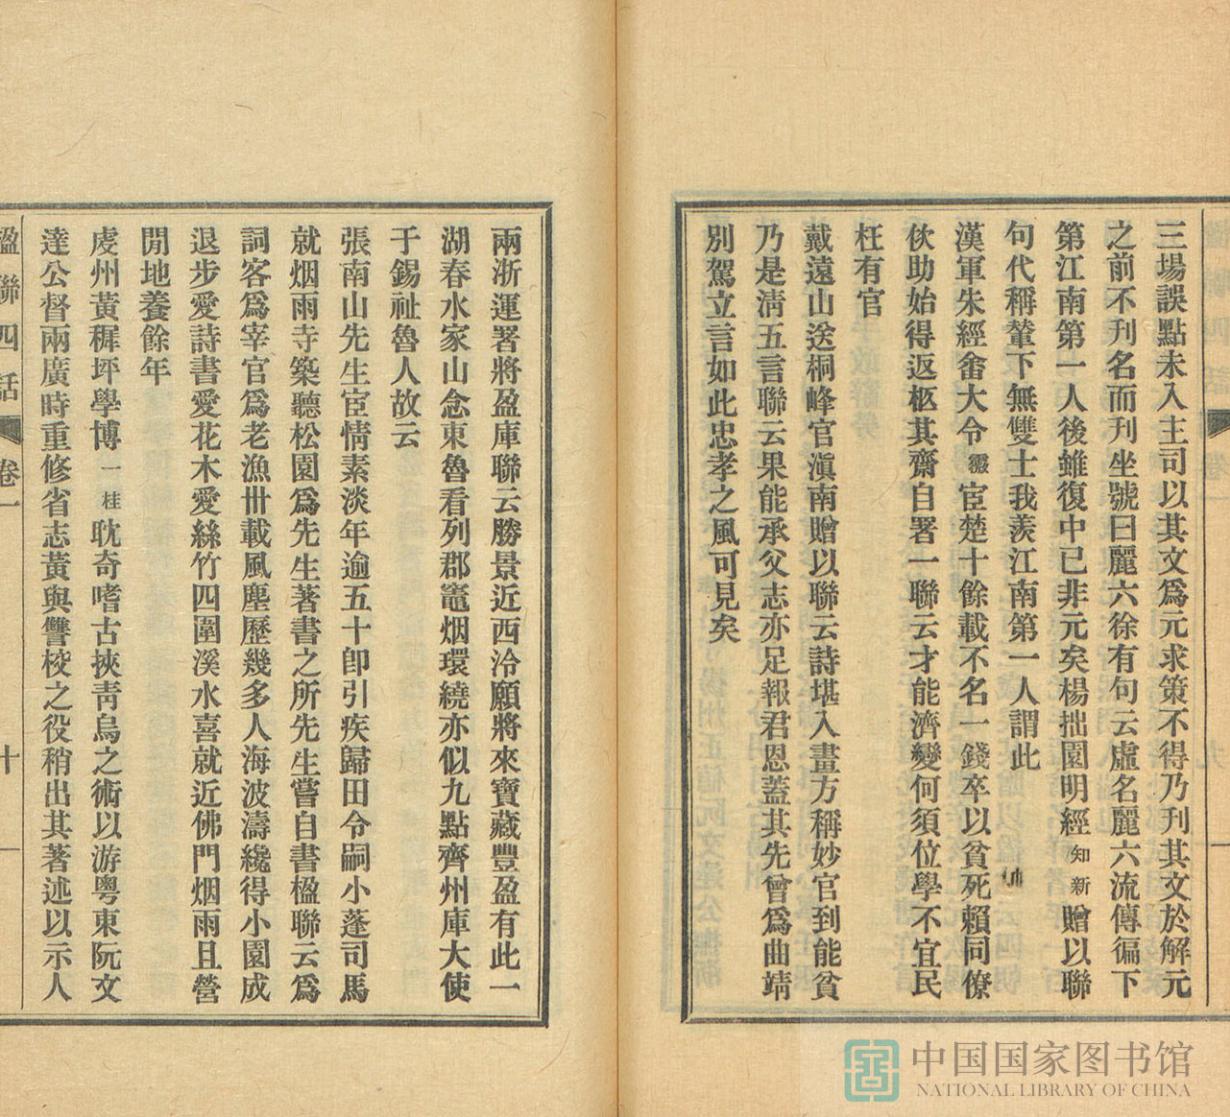 三場誤點未入主司以其文爲元求策不得乃刊其文於解元
之前不刊名而刊坐號曰麗六徐有句云虛名麗六流傳徧下
第江南第一人後雖復中已非元矣楊拙園明經知新贈以聯
句代稱輦下無雙士我羨江南第一人謂此
漢軍朱經畬大令宦楚十餘載不名一錢卒以貧死賴同僚
伙助始得返柩其齋自署一聯云才能濟變何須位學不宜民
枉有官
戴遠山送桐峰官滇南贈以聯云詩堪入畫方稱妙官到能貧
乃是淸五言聯云果能承父志亦足報君恩蓋其先曾爲曲靖
別駕立言如此忠孝之風可見矣
兩浙運署將盈庫聯云勝景近西泠願將來寶藏豐盈有此一
湖春水家山念東魯看列郡竈烟環繞亦似九點齊州庫大使
于錫祉魯人故云
張南山先生宦情素淡年逾五十卽引疾歸田令嗣小蓬司馬
就烟雨寺築聽松園爲先生著書之所先生嘗自書楹聯云爲
詞客爲宰官爲老漁卅載風塵歷幾多人海波濤纔得小園成
退步愛詩書愛花木愛絲竹四圍溪水喜就近佛門烟雨且營
閒地養餘年
虔州黃穉坪學博一桂耽奇嗜古挾靑烏之術以游粵東阮文
達公督兩廣時重修省志黃與讐校之役稍出其著述以示人
楹聯四話 卷一 十
中国国家图书馆
NATIONAL LIBRARY OF CHINA